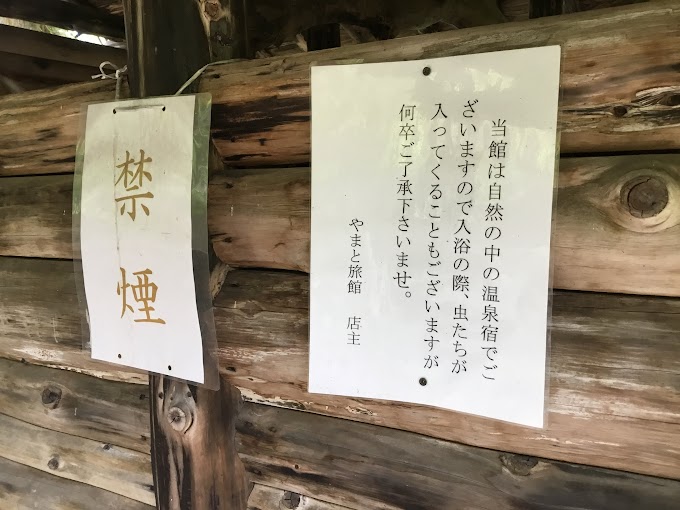 当館は自然の中の温泉宿でご
ざいますので入浴の際、虫たちが
入ってくることもございますが
何卒ご了承下さいませ。
やまと旅館　店主
禁煙